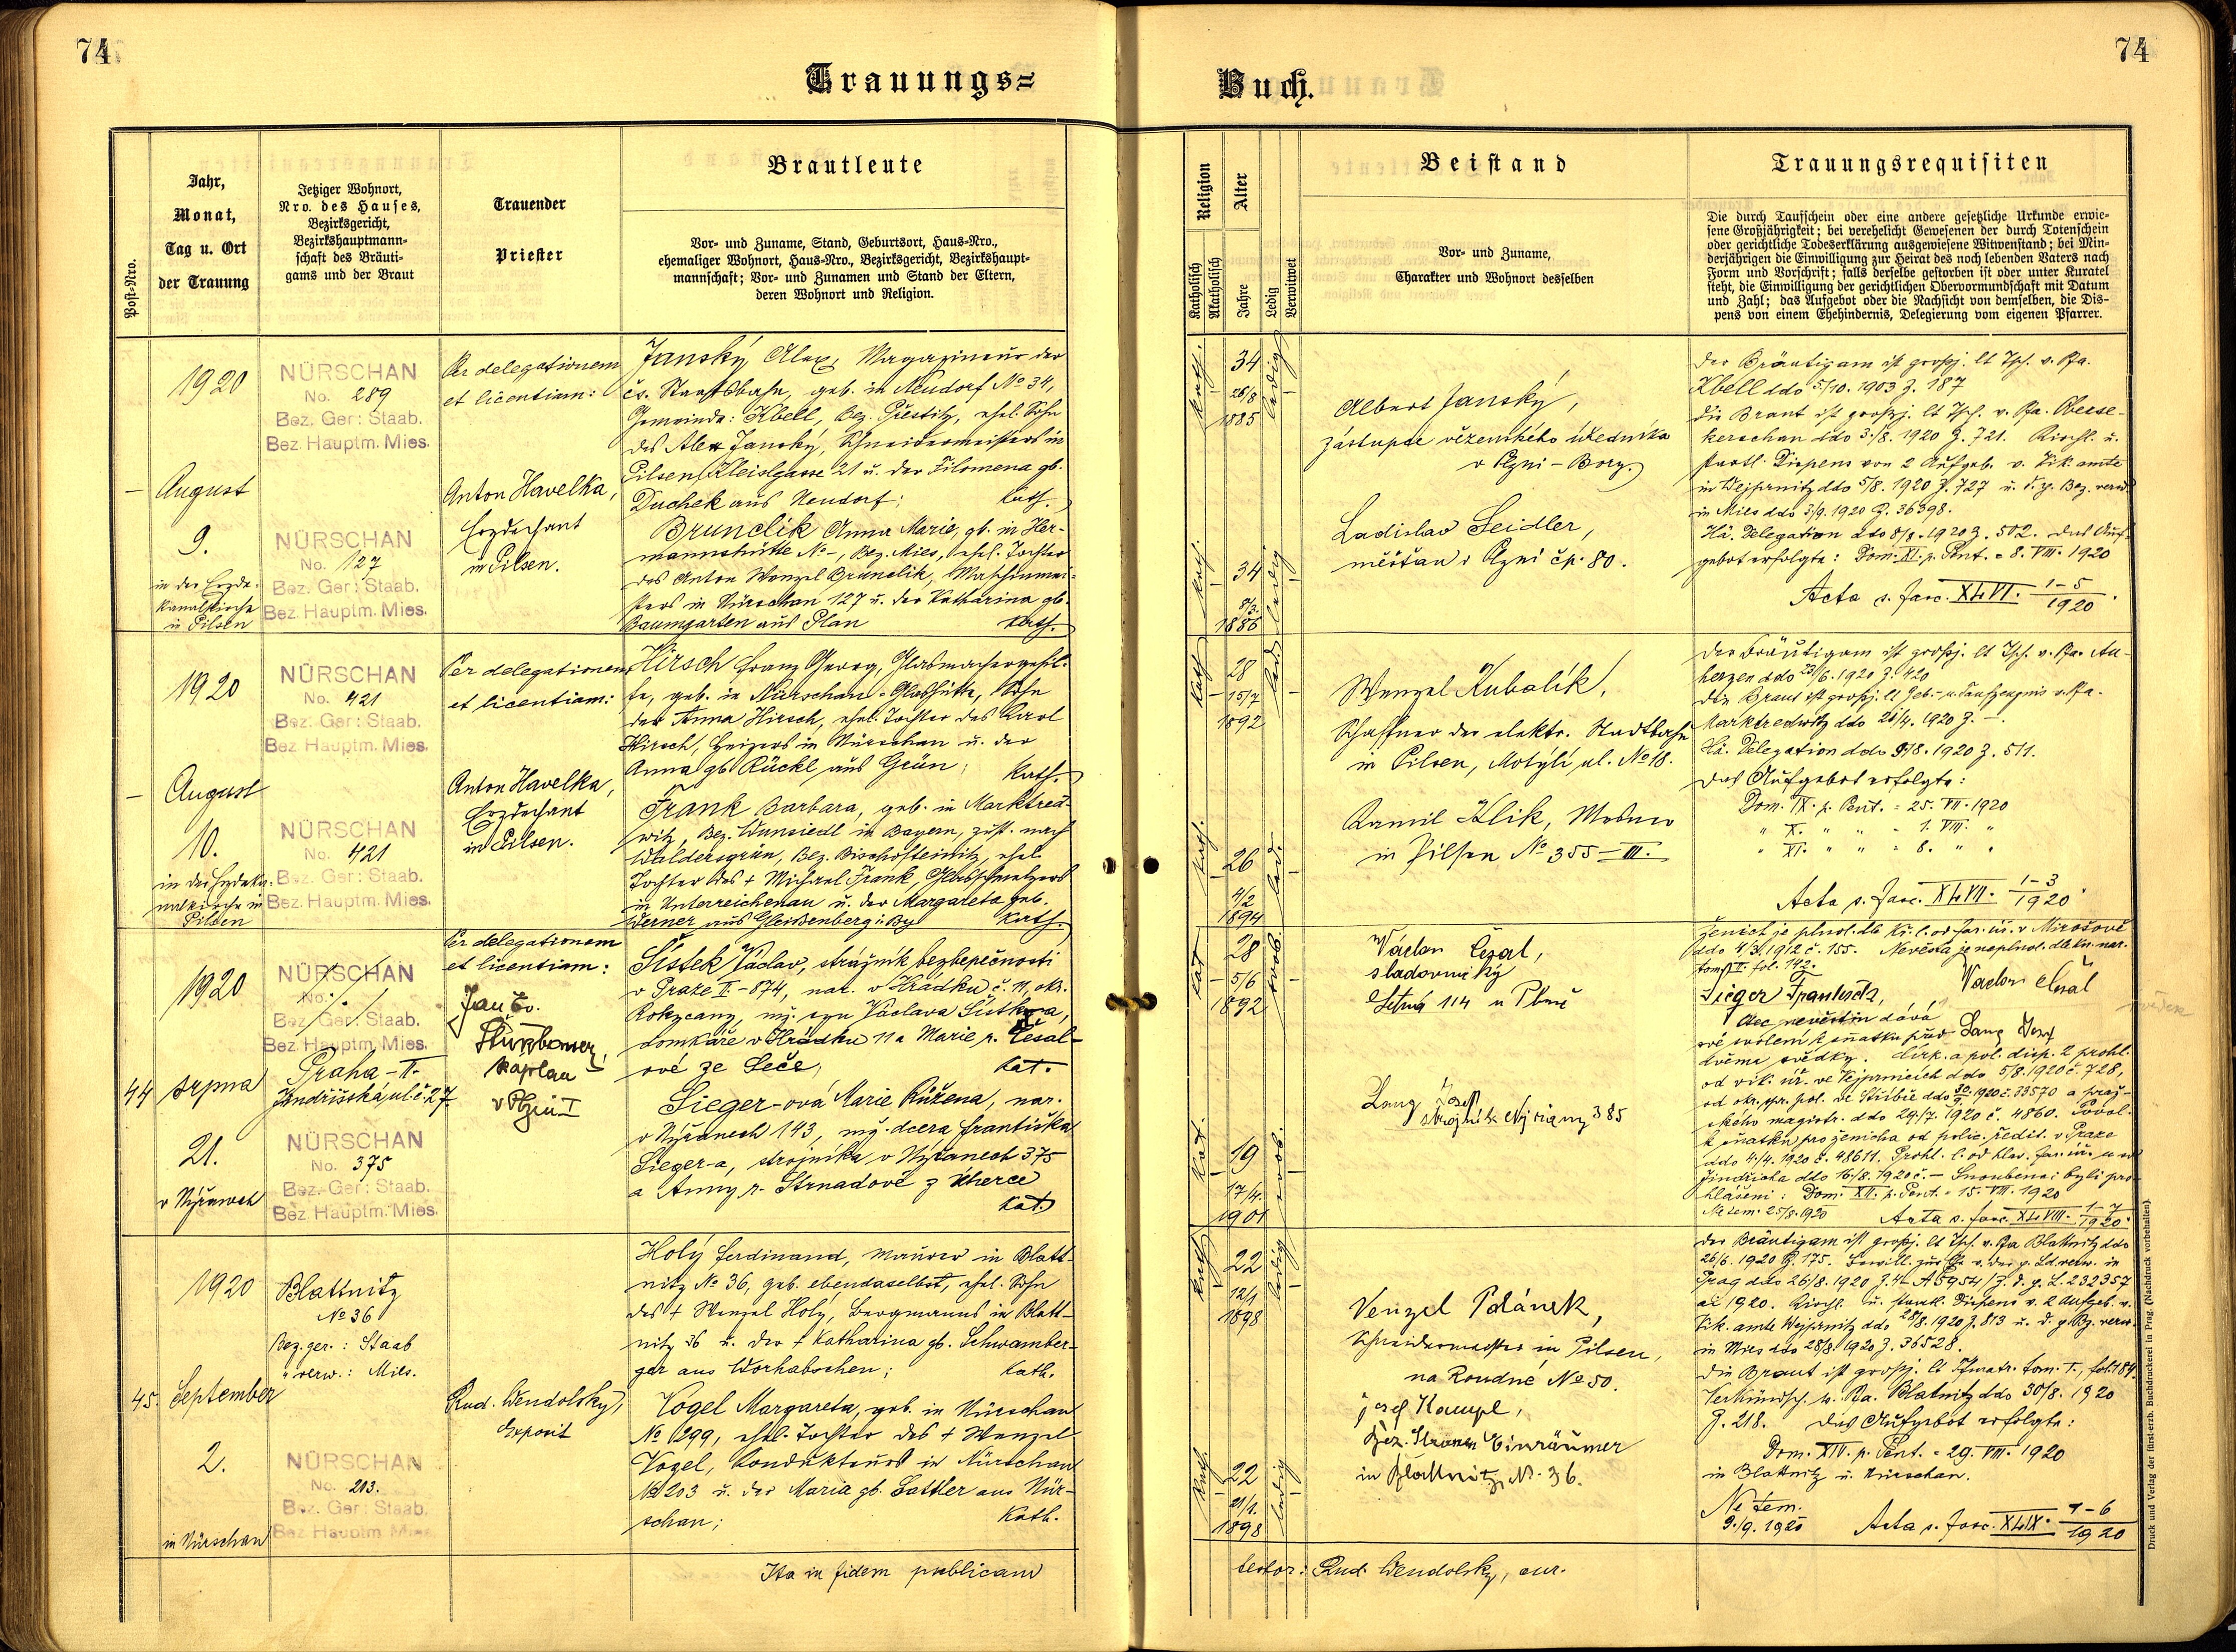 74
74
Trauungs=
Buch.
Post-Nro.
Jahr,
Monat,
Tag u. Ort
der Trauung
Jetziger Wohnort,
Nro. des Hauses,
Bezirksgericht,
Bezirkshauptmann-
schaft des Bräuti-
gams und der Braut
Trauender
Priester
Brautleute
Vor- und Zuname, Stand, Geburtsort, Haus-Nro.,
ehemaliger Wohnort, Haus-Nro., Bezirksgericht, Bezirkshaupt-
mannschaft; Vor- und Zunamen und Stand der Eltern,
deren Wohnort und Religion.
Religion
Katholisch
Akatholisch
Alter
Jahre
Ledig
Verwitwet
Beistand
Vor- und Zuname,
Charakter und Wohnort desselben
Trauungsrequisiten
Die durch Taufschein oder eine andere gesetzliche Urkunde erwie-
sene Großjährigkeit; bei verehelicht Gewesenen der durch Totenschein
oder gerichtliche Todeserklärung ausgewiesene Witwenstand; bei Min-
derjährigen die Einwilligung zur Heirat des noch lebenden Vaters nach
Form und Vorschrift; falls derselbe gestorben ist oder unter Kuratel
steht, die Einwilligung der gerichtlichen Obervormundschaft mit Datum
und Zahl; das Aufgebot oder die Nachsicht von demselben, die Dis-
pens von einem Ehehindernis, Delegierung vom eigenen Pfarrer.
1920
August
9.
in der Erzde-
kanalkirche
in Pilsen
NÜRSCHAN
No. 289
Bez. Ger: Staab.
Bez. Hauptm. Mies.
NÜRSCHAN
No. 127
Bez. Ger: Staab.
Bez. Hauptm. Mies.
Per delegationem
et licentiam:
Anton Havelka,
Erzdechant
in Pilsen.
Janský Alex, Magazineur der
čs. Staatsbahn, geb. in Neudorf No 34,
Gemeinde: Kbell, Bez. Přestitz, ehel. Sohn
des Alex Janský, Schneidermeisters in
Pilsen, Kleistgasse 21 u. der Filomena gb.
Duchek aus Neudorf; kath.
Brunclik Anna Marie, gb. in Her-
mannshütte No -, Bez. Mies, ehel. Tochter
des Anton Wenzel Brunclik, Maschinmei-
sters in Nürschan 127 u. der Katharina gb.
Baumgarten aus Plan kath.
kath. 34 ledig
26/8
1885
kath. 34 ledig
8/3.
1886
Albert Janský,
zástupce vězenského úředníka
v Plzni - Bory.
Ladislav Seidler,
měšťan v Plzni čp. 80.
Der Bräutigam ist großj. lt Tsch. v. Pfa.
Kbell ddo 5/10. 1903 Z. 187
die Braut ist großj. lt Tsch. v. Pfa. Obersе-
kerschan ddo 3./8. 1920 Z. 721. Kirchl. u.
staatl. Dispens von 2 Aufgeb. v. Vik. amte
in Wejprnitz ddo 5/8. 1920 Z. 727 u. d. p. Bez. verw.
in Mies ddo 3/9. 1920 Z. 36398.
Hä. Delegation ddo 8/8. 1920 Z. 502. Das Auf-
gebot erfolgte: Dom. XI. p. Pent. = 8. VIII. 1920
Acta s. fasc. XLVI. 1-5/1920.
1920
August
10.
in der Erzdeka-
nalkirche in
Pilsen
NÜRSCHAN
No. 421
Bez. Ger: Staab.
Bez. Hauptm. Mies.
NÜRSCHAN
No. 421
Bez. Ger: Staab.
Bez. Hauptm. Mies.
Per delegationem
et licentiam:
Anton Havelka,
Erzdechant
in Pilsen.
Hirsch Franz Georg, Glasmachergehil-
fe, geb. in Nürschan-Glashütte, Sohn
der Anna Hirsch, ehel. Tochter des Karl
Hirsch, Heizers in Nürschan u. der
Anna gb. Rückl aus Grün; kath.
Frank Barbara, geb. in Marktred-
witz, Bez. Wunsiedl in Bayern, zust. nach
Waldersgrün, Bez. Bischofteinitz, ehel.
Tochter des + Michael Frank, Glasschmelzers
in Unterreichenau u. der Margareta geb.
Werner aus Gleißenberg i. By kath.
kath. 28 led.
15/7
1892
kath. 26 led.
4/2
1894
Wenzel Kubalík,
Schaffner der elektr. Stadtbahn
in Pilsen, Motýlí ul. No 18.
Kamil Klik,
in Pilsen No 355-III.
Der Bräutigam ist großj. lt Tsch. v. Pfa. Au-
herzen ddo 23/6. 1920 Z. 420
die Braut ist großj. lt Geb.- u. Taufzeugnis v. Pfa.
Marktredwitz ddo 26/4. 1920 Z. -.
Hä. Delegation ddo 9/8. 1920 Z. 511.
Das Aufgebot erfolgte:
Dom. IX. p. Pent. = 25. VII. 1920
" X. " " = 1. VIII. "
" XI. " " = 8. " "
Acta s. fasc. XLVII. 1-3/1920.
44
1920
srpna
21.
v Nýřanech
NÜRSCHAN
No.
Bez. Ger: Staab.
Bez. Hauptm. Mies.
Praha - II.
Jindřišská ul. č. 27
NÜRSCHAN
No. 375
Bez. Ger: Staab.
Bez. Hauptm. Mies.
Per delegationem
et licentiam:
Jan Ev.
kaplan
v Plzni I
Šístek Václav, strážník bezbepečnosti
v Praze II.-874, nar. v Hrádku č. 11, okr.
Rokycany, mž. syn Václava Šístka,
domkáře v Hrádku 11 a Marie r. Česal-
ové ze Seče, kat.
Sieger-ová Marie Růžena, nar.
v Nýřanech 143, mž. dcera Františka
Sieger-a, strojníka, v Nýřanech 375
a Anny r. Strnadové z Úherce
kat.
kat. 28 svob.
5/6
1892
kat. 19 svob.
17/4.
1901
Václav Česal,
sladovnický
Letná 114 u Plzně
Lang Josef
strojník Nýřany 385
ženich je plnol. dle kř. l. od far. úř. v Mirošově
ddo 4/3. 1912 č. 155. Nevěsta je neplnol. dle kn. nar.
tom. II. fol. 142.
Sieger František, Václav Česal
otec nevěstin dává
své svolení k sňatku před Lang Josef
dvěma svědky. Církv. a pol. disp. 2 prohl.
od vik. úř. ve Vejprnicích ddo 5/8. 1920 č. 728,
od okr. spr. pol. ve Stříbře ddo 1920 č. 33570 a praž-
ského magistr. ddo 29/7. 1920 č. 4860. Povol.
k sňatku pro ženicha od polic. ředit. v Praze
ddo 4/4. 1920 č. 48611. Prohl. l. od far. úř. u sv.
Jindřicha ddo 16/8. 1920 č. - Snoubenci byli pro-
hlášeni: Dom. XII. p. Pent. = 15. VIII. 1920
Ne tem. 25/8. 1920 Acta s. fasc. XLVIII. 1-7/1920.
45.
1920
September
2.
in Nürschan
Blattnitz
No 36
Bez. ger.: Staab
" verw.: Mies.
NÜRSCHAN
No. 203.
Bez. Ger: Staab.
Bez. Hauptm. Mies.
Rud. Wendolsky,
Exposit
Holý Ferdinand, Maurer in Blatt-
nitz No 36, geb. ebendaselbst, ehel. Sohn
des + Wenzel Holý, Bergmanns in Blatt-
nitz 36 u. der + Katharina gb. Schwamber-
ger aus Worhabschen; kath.
Vogel Margareta, geb. in Nürschan
No 299, ehel. Tochter des + Wenzel
Vogel, Kondukteurs in Nürschan
No 203 u. der Maria gb. Sattler aus Nür-
schan; kath.
kath. 22 ledig
12/1
1898
kath. 22 ledig
21/1.
1898
Venzel Polánek,
Schneidermeister in Pilsen,
na Roudné No 50.
Josef Hampl,
Bez. Strassen Einräumer
in Blattnitz N. 36.
Der Bräutigam ist großj. lt Tsch. v. Pfa Blattnitz ddo
26/6. 1920 Z. 175. Bewill. zur Ehe v. der p. Ld. verw. in
Prag ddo 26/8. 1920
ai 1920. Kirchl. u. staatl. Dispens v. 2 Aufgeb. v.
Vik. amte Wejprnitz ddo 28/8. 1920 Z. 813 u. d. p. Bz. verw.
in Mies ddo 28/8. 1920 Z. 36528.
Die Braut ist großj. lt Tfmatr. tom. I., fol. 184.
Verkündsch. v. Pfa. Blatnitz ddo 30/8. 1920
Z. 218. Das Aufgebot erfolgte:
Dom. XIV. p. Pent. = 29. VIII. 1920
in Blattnitz u. Nürschan.
Ne tem.
9./9. 1920 Acta s. fasc. XLIX. 1-6/1920
Ita in fidem publicam
testor: Rud. Wendolsky, cur.
Druck und Verlag der fürst-erzb. Buchdruckerei in Prag. (Nachdruck vorbehalten).